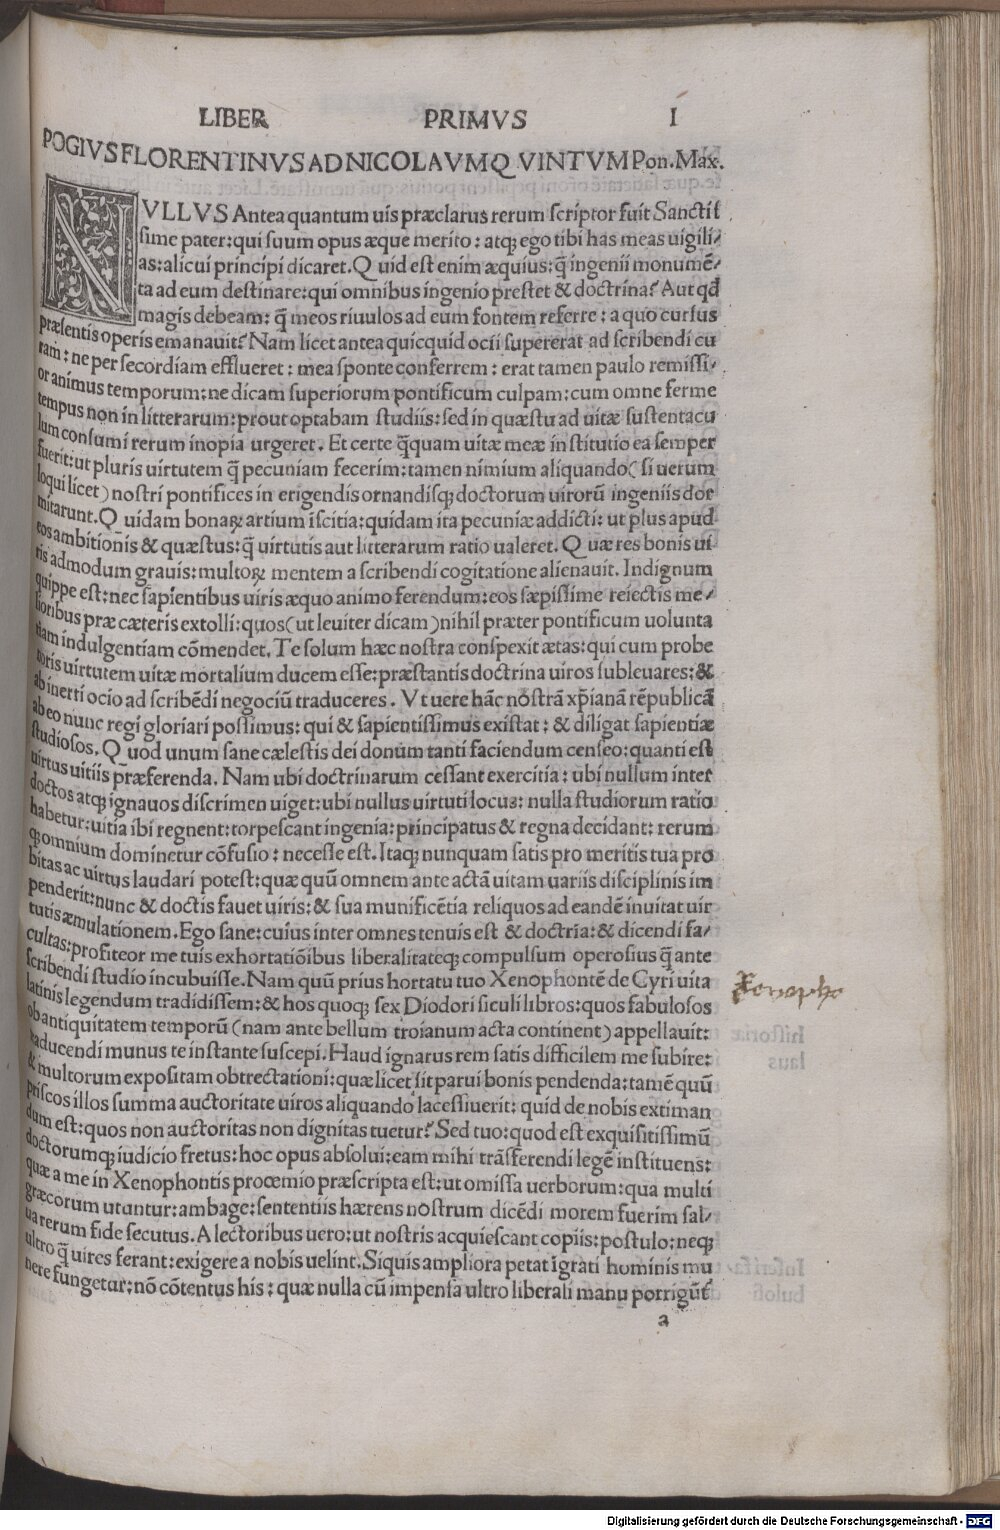 LIBER PRIMVS I
POGIVS FLORENTINVS AD NICOLAVM Q VINTVM Pon. Max.
NVLLVS Antea quantum uis præclarus rerum scriptor fuit Sanctis
sime pater: qui suum opus æque merito: atq; ego tibi has meas uigili/
as: alicui principi dicaret. Q uid est enim æquius: q̃ ingenii monumē/
ta ad eum destinare: qui omnibus ingenio prestet & doctrina? Aut qd
magis debeam: q̃ meos riuulos ad eum fontem referre: a quo cursus
præsentis operis emanauit? Nam licet antea quicquid ocii supererat ad scribendi cu
ram: ne per secordiam efflueret: mea sponte conferrem: erat tamen paulo remissi/
or animus temporum: ne dicam superiorum pontificum culpam: cum omne ferme
tempus non in litterarum: prout optabam studiis: sed in quæstu ad uitæ sustentacu
lum consumi rerum inopia urgeret. Et certe q̃quam uitæ meæ institutio ea semper
fuerit: ut pluris uirtutem q̃ pecuniam fecerim: tamen nimium aliquando (si uerum
loqui licet) nostri pontifices in erigendis ornandisq; doctorum uirorū ingeniis dor
mitarunt. Q uidam bonaꝝ artium iscitia: quidam ita pecuniæ addicti: ut plus apud
eos ambitionis & quæstus: q̃ uirtutis aut litterarum ratio ualeret. Q uæ res bonis ui
ris admodum grauis: multoꝝ mentem a scribendi cogitatione alienauit. Indignum
quippe est: nec sapientibus uiris æquo animo ferendum: eos sæpissime reiectis me/
lioribus præ cæteris extolli: quos (ut leuiter dicam) nihil præter pontificum uolunta
riam indulgentiam cōmendet. Te solum hæc nostra conspexit ætas: qui cum probe
noris uirtutem uitæ mortalium ducem esse: præstantis doctrina uiros subleuares: &
ab inerti ocio ad scribēdi negociū traduceres. Vt uere hāc nostrā xp̃ianā rēpublicā
ab eo nunc regi gloriari possimus: qui & sapientissimus existat: & diligat sapientiæ
studiosos. Q uod unum sane cælestis dei donum tanti faciendum censeo: quanti est
uirtus uitiis præferenda. Nam ubi doctrinarum cessant exercitia: ubi nullum inter
doctos atq; ignauos discrimen uiget: ubi nullus uirtuti locus: nulla studiorum ratio
habetur: uitia ibi regnent: torpescant ingenia: principatus & regna decidant: rerum
q; omnium dominetur cōfusio: necesse est. Itaq; nunquam satis pro meritis tua pro
bitas ac uirtus laudari potest: quæ quū omnem ante actā uitam uariis disciplinis im
penderit: nunc & doctis fauet uiris: & sua munificētia reliquos ad eandē inuitat uir
tutis æmulationem. Ego sane: cuius inter omnes tenuis est & doctrīa: & dicendi fa/
cultas: profiteor me tuis exhortatiōibus liberalitateq; compulsum operosius q̃ ante
scribendi studio incubuisse. Nam quū prius hortatu tuo Xenophontē de Cyri uita
latinis legendum tradidissem: & hos quoq; sex Diodori siculi libros: quos fabulosos
ob antiquitatem temporū (nam ante bellum troianum acta continent) appellauit:
traducendi munus te instante suscepi. Haud ignarus rem satis difficilem me subire:
& multorum expositam obtrectationi: quæ licet sit parui bonis pendenda: tamē quū
priscos illos summa auctoritate uiros aliquando lacessiuerit: quid de nobis extiman
dum est: quos non auctoritas non dignitas tuetur? Sed tuo: quod est exquisitissimū
doctorumq; iudicio fretus: hoc opus absolui: eam mihi trāsferendi legē instituens:
quæ a me in Xenophontis proœmio præscripta est: ut omissa uerborum: qua multi
græcorum utuntur: ambage: sententiis hærens nostrum dicēdi morem fuerim sal/
ua rerum fide secutus. A lectoribus uero: ut nostris acquiescant copiis: postulo: neq;
ultro q̃ uires ferant: exigere a nobis uelint. Siquis ampliora petat īgrati hominis mu
nere fungetur: nō cōtentus his: quæ nulla cū impensa ultro liberali manu porrigūt̃
a
Xenopho
Digitalisierung gefördert durch die Deutsche Forschungsgemeinschaft - DFG